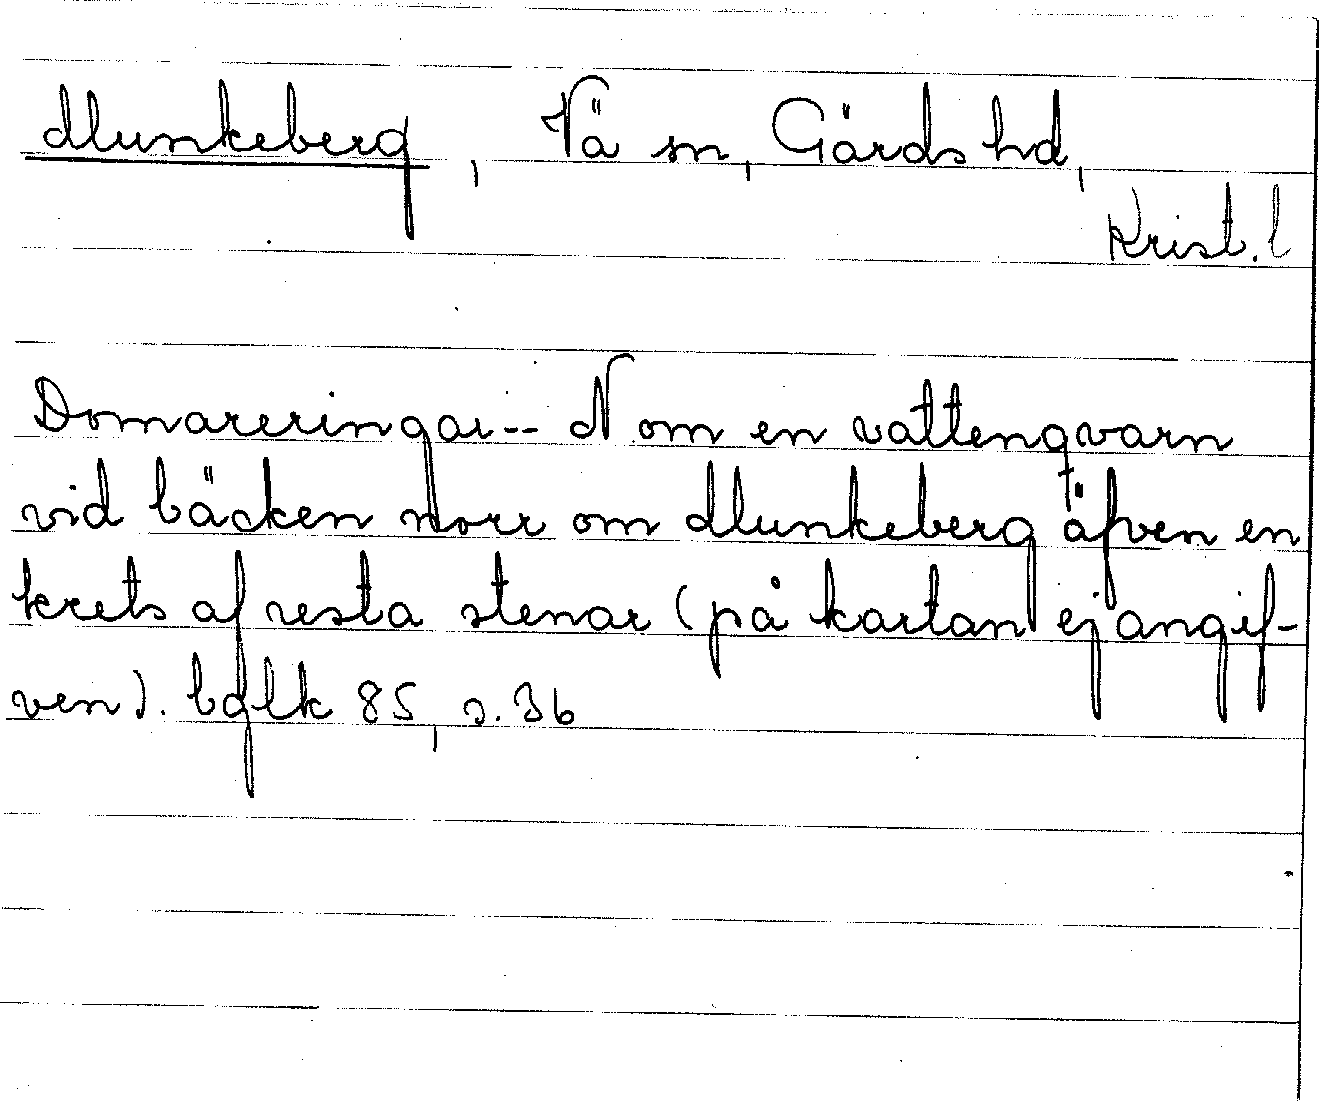 Munkeberg, Vä sn, Gärds hd,
Krist. l
Domareringar-- N om en vattenqvarn
vid bäcken norr om Munkeberg äfven en
krets af resta stenar (på kartan ej angif-
ven). bglk 85, s. 36